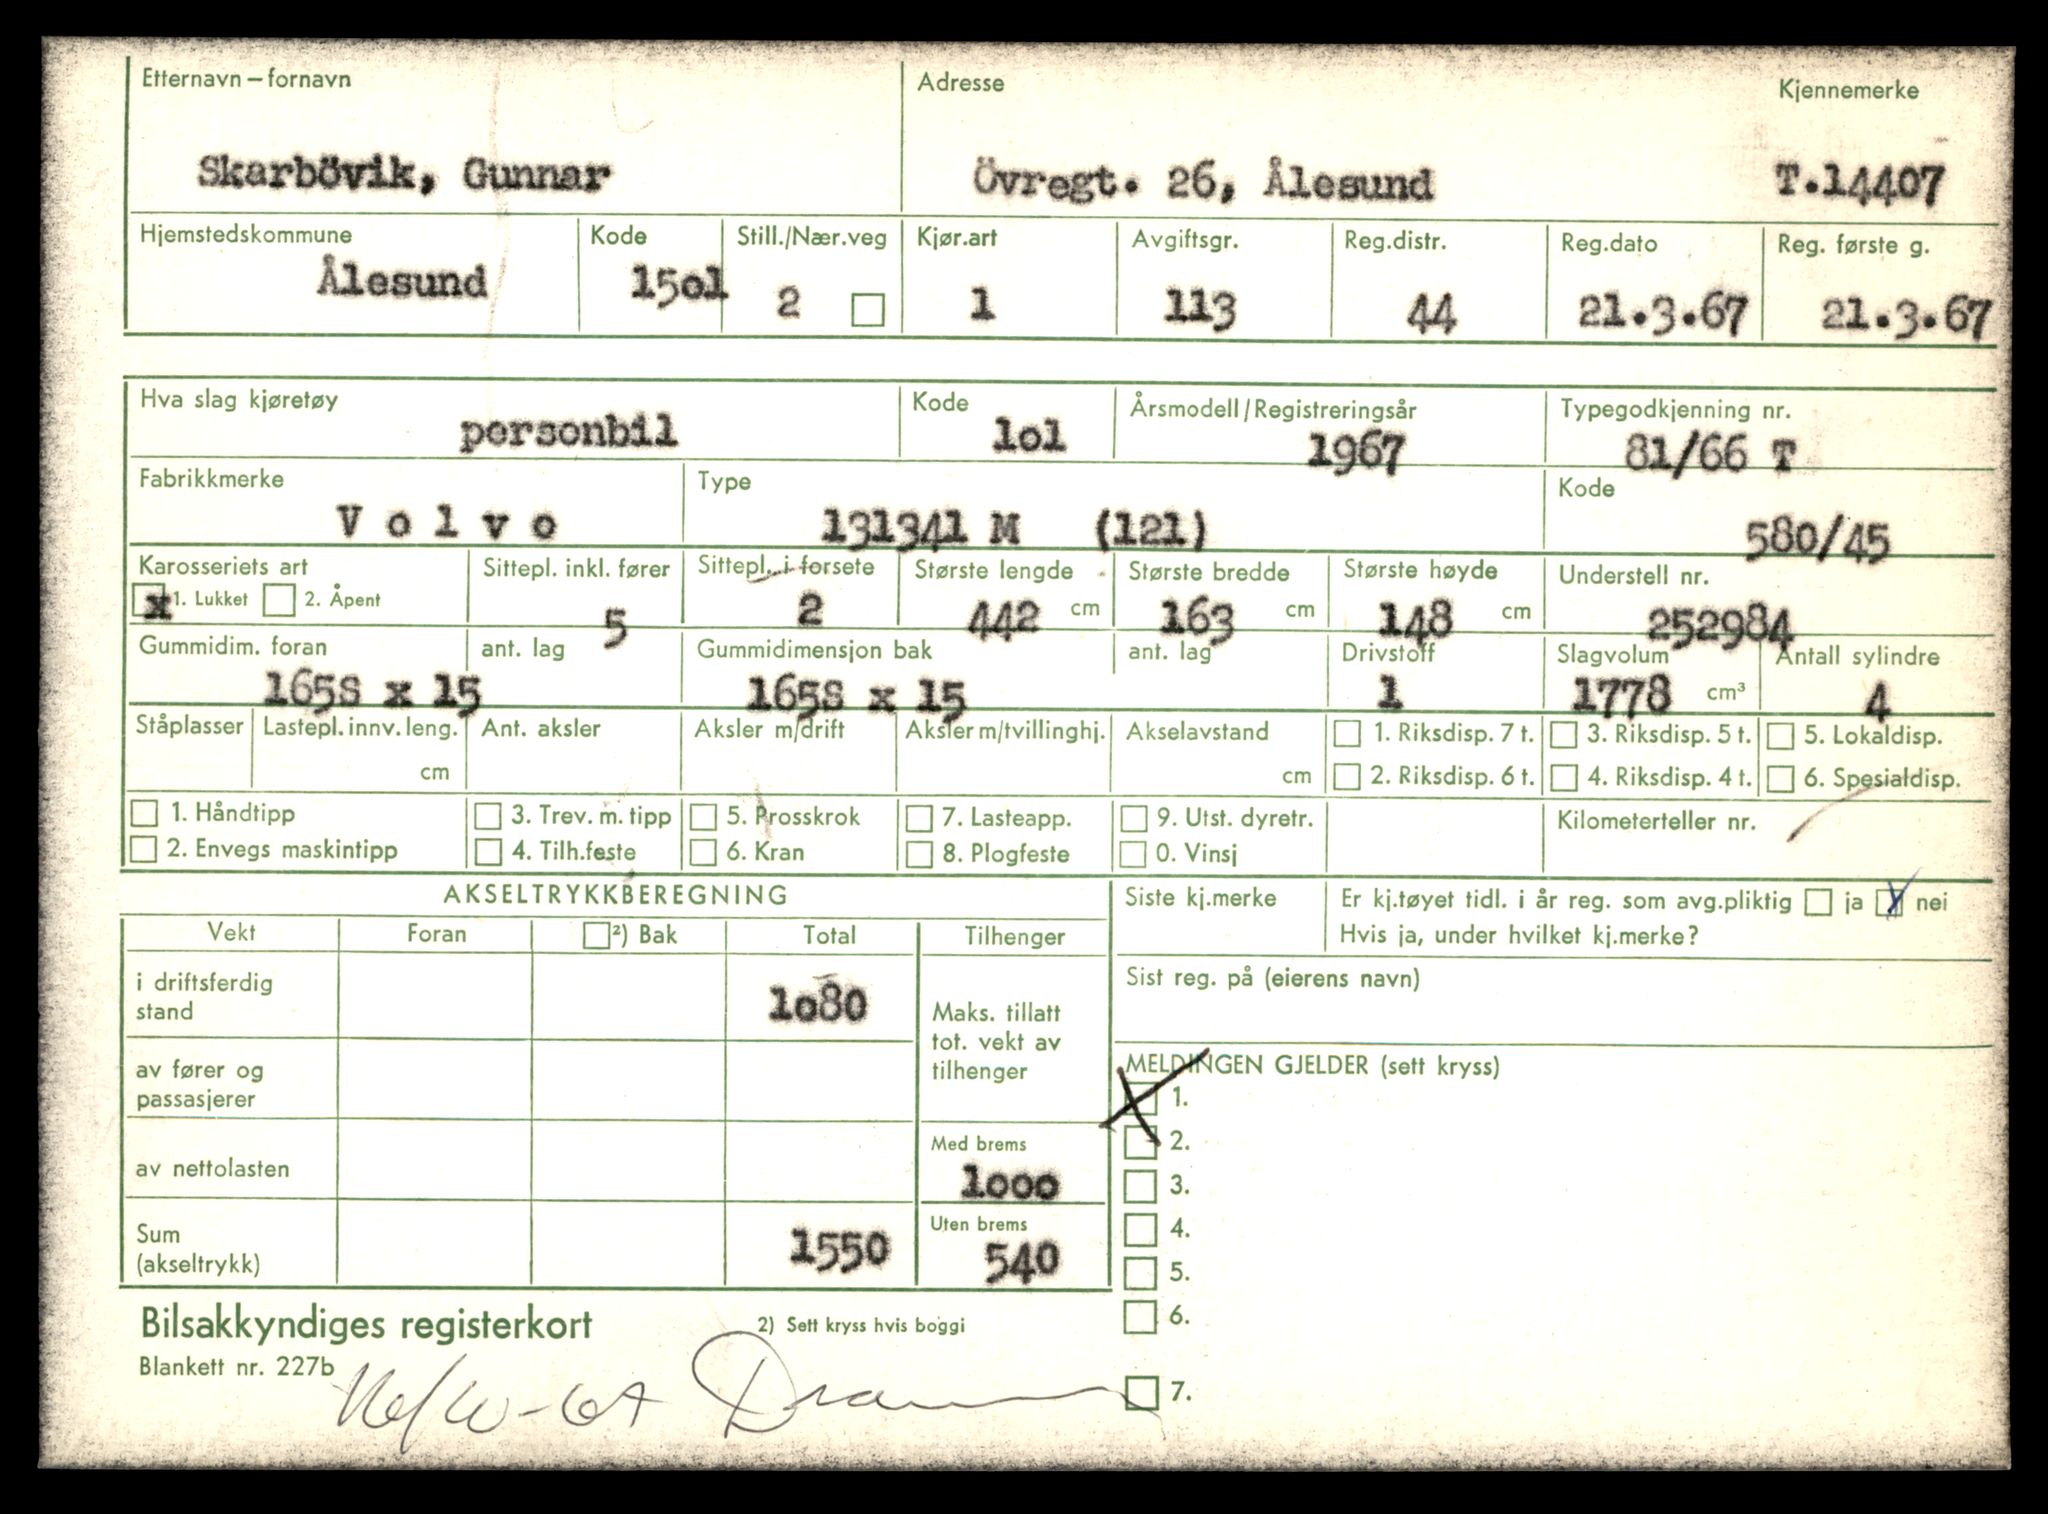 Etternavn – fornavn Adresse Kjennemerke
Skarbövik, Gunnar Övregt. 26, Ålesund T.14407
Hjemstedskommune Kode Still./Nær.veg Kjør.art Avgiftsgr. Reg.distr. Reg.dato Reg. første g.
Ålesund 15o1 2 1 113 44 21.3.67 21.3.67
Hva slag kjøretøy Kode Årsmodell/Registreringsår Typegodkjenning nr.
personbil 1o1 1967 81/66 T
Fabrikkmerke Type Kode
V o l v o 131341 M (121) 580/45
Karosseriets art Sittepl. inkl. fører Sittepl. i forsete Største lengde Største bredde Største høyde Understell nr.
x 1. Lukket 2. Åpent 5 2 442 cm 163 cm 148 cm 252984
Gummidim. foran ant. lag Gummidimensjon bak ant. lag Drivstoff Slagvolum Antall sylindre
165S x 15 165S x 15 1 1778 cm³ 4
Ståplasser Lastepl. innv. leng. Ant. aksler Aksler m/drift Aksler m/tvillinghj. Akselavstand 1. Riksdisp. 7 t. 3. Riksdisp. 5 t. 5. Lokaldisp.
cm cm 2. Riksdisp. 6 t. 4. Riksdisp. 4 t. 6. Spesialdisp.
1. Håndtipp 3. Trev. m. tipp 5. Prosskrok 7. Lasteapp. 9. Utst. dyretr. Kilometerteller nr.
2. Envegs maskintipp 4. Tilh.feste 6. Kran 8. Plogfeste 0. Vinsj
AKSELTRYKKBEREGNING Siste kj.merke Er kj.tøyet tidl. i år reg. som avg.pliktig ja nei
Hvis ja, under hvilket kj.merke?
Vekt Foran ²) Bak Total Tilhenger
Sist reg. på (eierens navn)
i driftsferdig stand 1o80
Maks. tillatt tot. vekt av tilhenger
av fører og passasjerer
MELDINGEN GJELDER (sett kryss)
1.
2.
av nettolasten Med brems
1ooo
3.
Sum (akseltrykk) 1550 Uten brems
540
4.
5.
6.
Bilsakkyndiges registerkort 2) Sett kryss hvis boggi
Blankett nr. 227b
7.